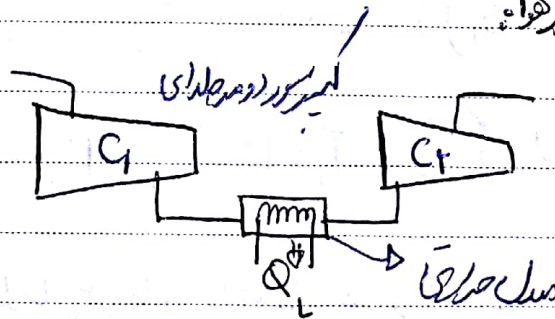 هوا:
کمپرسور دو مرحله‌ای
C₁
C₂
Q_L
مبدل حرارتی